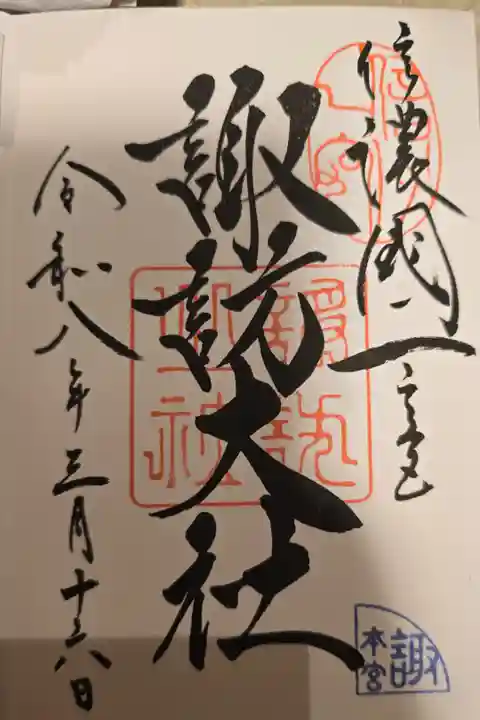 信濃國一之宮
諏訪大社
令和八年三月十六日
諏訪
大社
諏
本宮